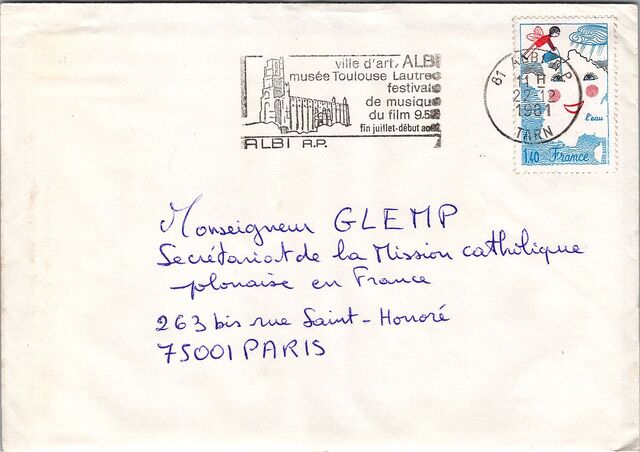 ville d'art, ALBI
musée Toulouse Lautrec
festivals
de musique
du film 9,5
fin juillet-début août
ALBI R.P.
81 ALBI R.P.
22-12
1981
TARN
l'eau
1,40 France
Monseigneur GLEMP
Secrétariat de la Mission catholique
polonaise en France
263 bis rue Saint-Honoré
75001 PARIS